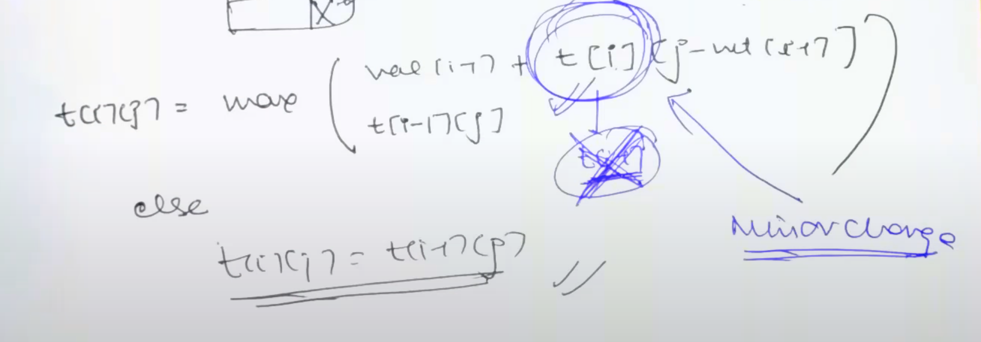 X
t[i][j] = max ( val[i-1] + t[i] [j-wt[i-1]] )
t[i-1][j]
else
t[i][j] = t[i-1][j]
Minor change